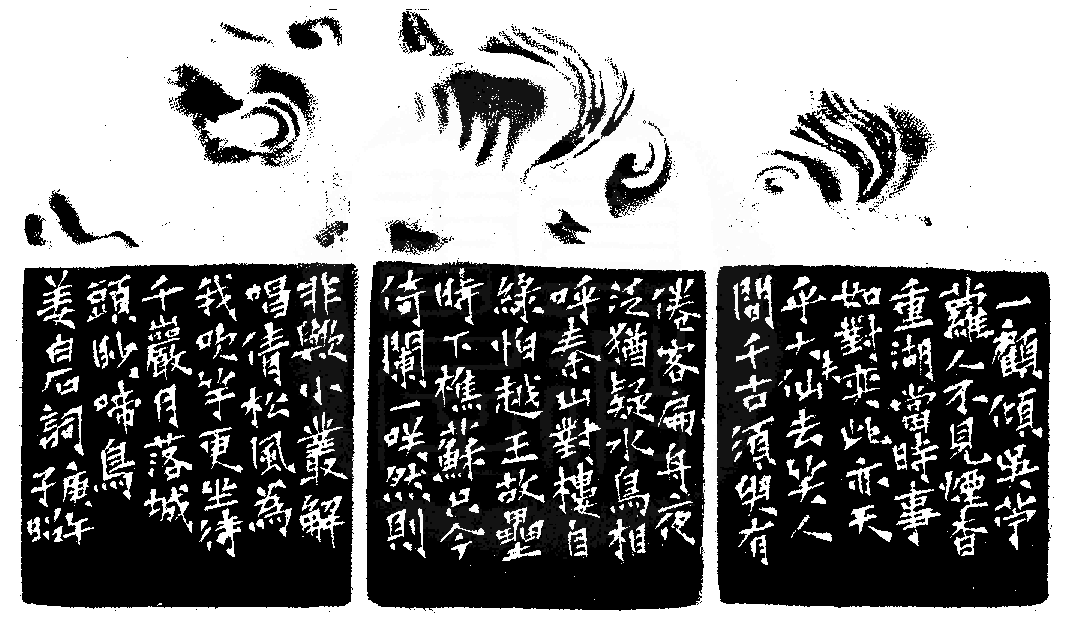 一顧傾吳苧
蘿人不見煙杳
重湖當時事
如對奕此亦天
乎大夫仙去笑人
間千古須臾有
倦客扁舟夜
泛猶疑水鳥相
呼秦山對樓自
綠怕越王故壘
時下樵蘇只今
倚闌一咲然則
非歟小叢解
唱倩松風為
我吹竽更坐待
千巖月落城
頭眇啼鳥
姜白石詞
庚午